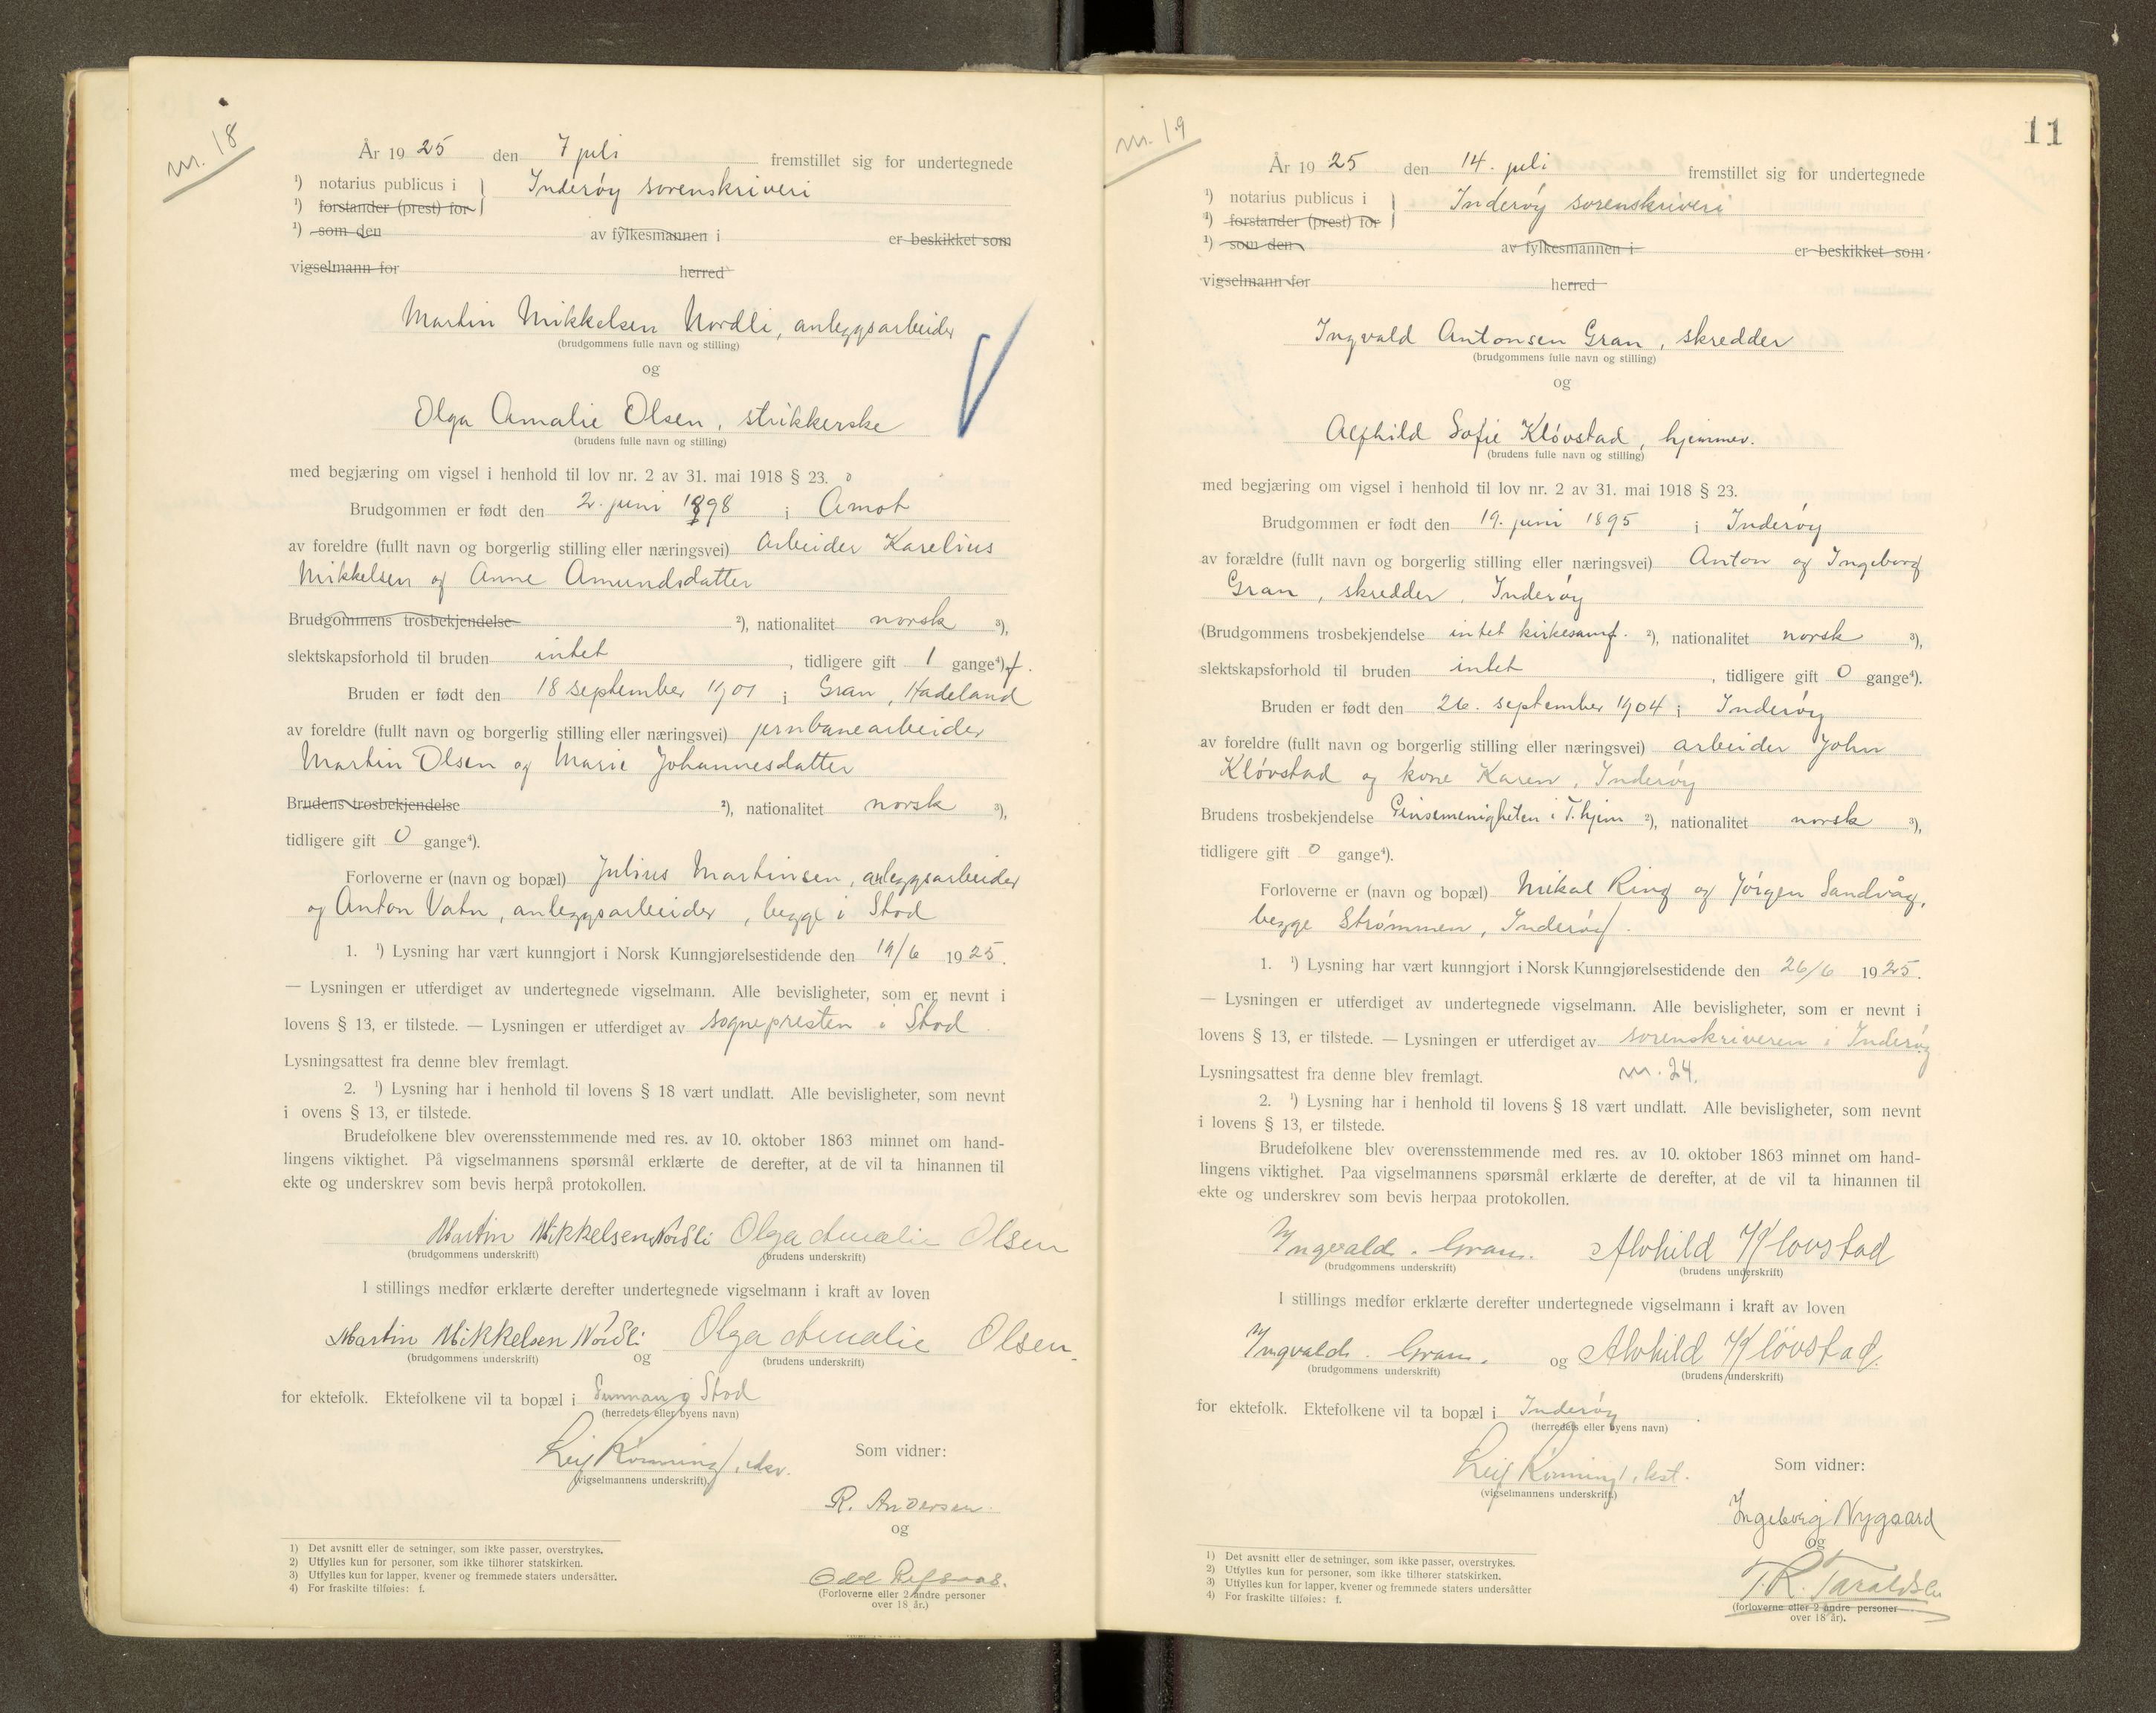 nr. 18
År 1925 den 7 juli fremstillet sig for undertegnede
¹) notarius publicus i } Inderøy sorenskriveri
¹) forstander (prest) for
¹) som den av fylkesmannen i er beskikket som
vigselmann for herred
Martin Mikkelsen Nordli, anleggsarbeider
(brudgommens fulle navn og stilling)
og
Olga Amalie Olsen, strikkerske
(brudens fulle navn og stilling)
med begjæring om vigsel i henhold til lov nr. 2 av 31. mai 1918 § 23.
Brudgommen er født den 2. juni 1898 i Åmot
av foreldre (fullt navn og borgerlig stilling eller næringsvei) arbeider Karelius
Mikkelsen og Anne Amundsdatter
Brudgommens trosbekjendelse ²), nationalitet norsk ³),
slektskapsforhold til bruden intet, tidligere gift 1 gange⁴) f.
Bruden er født den 18 september 1901 i Gran, Hadeland
av foreldre (fullt navn og borgerlig stilling eller næringsvei) jernbanearbeider
Martin Olsen og Marie Johannesdatter
Brudens trosbekjendelse ²), nationalitet norsk ³),
tidligere gift 0 gange⁴).
Forloverne er (navn og bopæl) Julius Martinsen, anleggsarbeider
og Anton Vatn, anleggsarbeider, begge i Stod
1. ¹) Lysning har vært kunngjort i Norsk Kunngjørelsestidende den 19/6 1925.
— Lysningen er utferdiget av undertegnede vigselmann. Alle bevisligheter, som er nevnt i
lovens § 13, er tilstede. — Lysningen er utferdiget av sognepresten i Stod
Lysningsattest fra denne blev fremlagt.
2. ¹) Lysning har i henhold til lovens § 18 vært undlatt. Alle bevisligheter, som nevnt
i ovens § 13, er tilstede.
Brudefolkene blev overensstemmende med res. av 10. oktober 1863 minnet om hand-
lingens viktighet. På vigselmannens spørsmål erklærte de derefter, at de vil ta hinannen til
ekte og underskrev som bevis herpå protokollen.
Martin Mikkelsen Nordli Olga Amalie Olsen
(brudgommens underskrift) (brudens underskrift)
I stillings medfør erklærte derefter undertegnede vigselmann i kraft av loven
Martin Mikkelsen Nordli og Olga Amalie Olsen.
(brudgommens underskrift) (brudens underskrift)
for ektefolk. Ektefolkene vil ta bopæl i Sunnan i Stod
(herredets eller byens navn)
Leif Rønning,
(vigselmannens underskrift)
Som vidner:
R. Andersen.
og
Odd
(Forloverne eller 2 andre personer
over 18 år.)
1) Det avsnitt eller de setninger, som ikke passer, overstrykes.
2) Utfylles kun for personer, som ikke tilhører statskirken.
3) Utfylles kun for lapper, kvener og fremmede staters undersåtter.
4) For fraskilte tilføies: f.
11
nr. 19
År 1925 den 14. juli fremstillet sig for undertegnede
¹) notarius publicus i } Inderøy sorenskriveri
¹) forstander (prest) for
¹) som den av fylkesmannen i er beskikket som
vigselmann for herred
Ingvald Antonsen Gran, skredder
(brudgommens fulle navn og stilling)
og
Alfhild Sofie Kløvstad, hjemmev.
(brudens fulle navn og stilling)
med begjæring om vigsel i henhold til lov nr. 2 av 31. mai 1918 § 23.
Brudgommen er født den 19. juni 1895 i Inderøy
av forældre (fullt navn og borgerlig stilling eller næringsvei) Anton og Ingeborg
Gran, skredder, Inderøy
(Brudgommens trosbekjendelse intet kirkesamf. ²), nationalitet norsk ³),
slektskapsforhold til bruden intet, tidligere gift 0 gange⁴).
Bruden er født den 26. september 1904 i Inderøy
av foreldre (fullt navn og borgerlig stilling eller næringsvei) arbeider John
Kløvstad og kone Karen, Inderøy
Brudens trosbekjendelse Pinsemenigheten i T.hjem ²), nationalitet norsk ³),
tidligere gift 0 gange⁴).
Forloverne er (navn og bopæl) Mikal Ring og Jørgen Sandvåg,
begge Strømmen, Inderøy.
1. ¹) Lysning har vært kunngjort i Norsk Kunngjørelsestidende den 26/6 1925.
— Lysningen er utferdiget av undertegnede vigselmann. Alle bevisligheter, som er nevnt i
lovens § 13, er tilstede. — Lysningen er utferdiget av sorenskriveren i Inderøy
Lysningsattest fra denne blev fremlagt. nr. 24.
2. ¹) Lysning har i henhold til lovens § 18 vært undlatt. Alle bevisligheter, som nevnt
i lovens § 13, er tilstede.
Brudefolkene blev overensstemmende med res. av 10. oktober 1863 minnet om hand-
lingens viktighet. Paa vigselmannens spørsmål erklærte de derefter, at de vil ta hinannen til
ekte og underskrev som bevis herpaa protokollen.
Yngvald. Gran. Alvhild Kløvstad
(brudgommens underskrift) (brudens underskrift)
I stillings medfør erklærte derefter undertegnede vigselmann i kraft av loven
Yngvald. Gran. og Alvhild Kløvstad.
(brudgommens underskrift) (brudens underskrift)
for ektefolk. Ektefolkene vil ta bopæl i Inderøy.
(herredets eller byens navn)
Leif Rønning, kst.
(vigselmannens underskrift)
Som vidner:
Ingeborg Nygaard
og
T. R. Taraldsen
(forloverne eller 2 andre personer
over 18 år).
1) Det avsnitt eller de setninger, som ikke passer, overstrykes.
2) Utfylles kun for personer, som ikke tilhører statskirken.
3) Utfylles kun for lapper, kvener og fremmede staters undersåtter
4) For fraskilte tilføies: f.